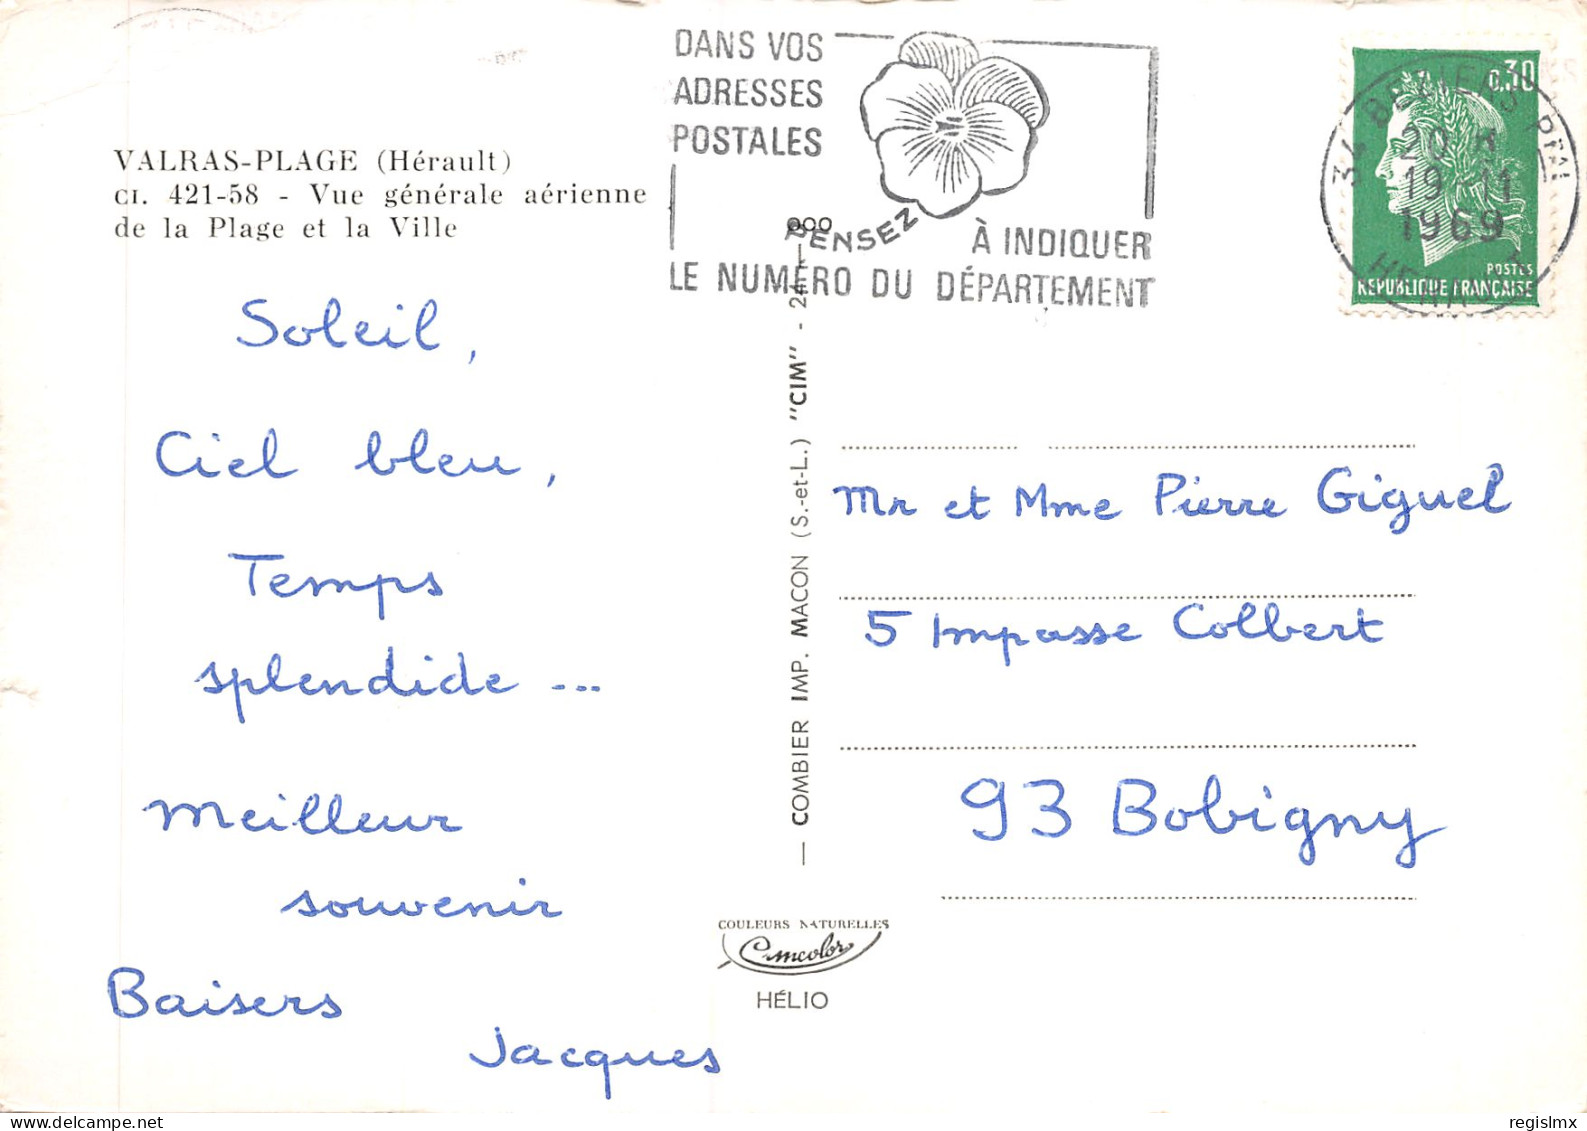 VALRAS-PLAGE (Hérault)
CI. 421-58 - Vue générale aérienne
de la Plage et la Ville
Soleil,
Ciel bleu,
Temps
splendide ...
Meilleur
souvenir
Baisers
Jacques
DANS VOS
ADRESSES
POSTALES
PENSEZ
À INDIQUER
LE NUMÉRO DU DÉPARTEMENT
0,30
POSTES
REPUBLIQUE FRANÇAISE
34 BEZIERS PPAL
20 H
19-11
1969
HERAULT
— COMBIER IMP. MACON (S.-et-L.) "CIM" -
Mr et Mme Pierre Giguel
5 Impasse Colbert
93 Bobigny
COULEURS NATURELLES
Cimcolor
HÉLIO
regislmx